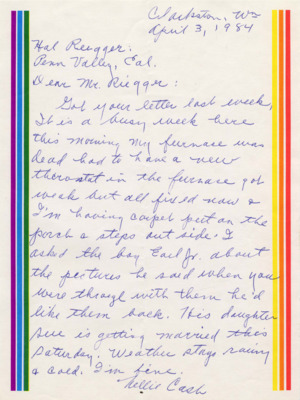 Clarkston, Wa
April 3, 1984
Hal Riegger:
Penn Valley, Cal.
Dear Mr. Riegger:
Got your letter last week,
It is a busy week here
this morning my furnace was
dead had to have a new
therostat in the furnace got
weak but all fixed now &
I'm having carpet put on the
porch & steps out side. I
asked the boy Earl Jr. about
the pectures he said when you
were through with them he'd
like them back. His daughter
is getting married this
Saturday. Weather stays rainy
& cold. I'm fine.
Nellie Cash